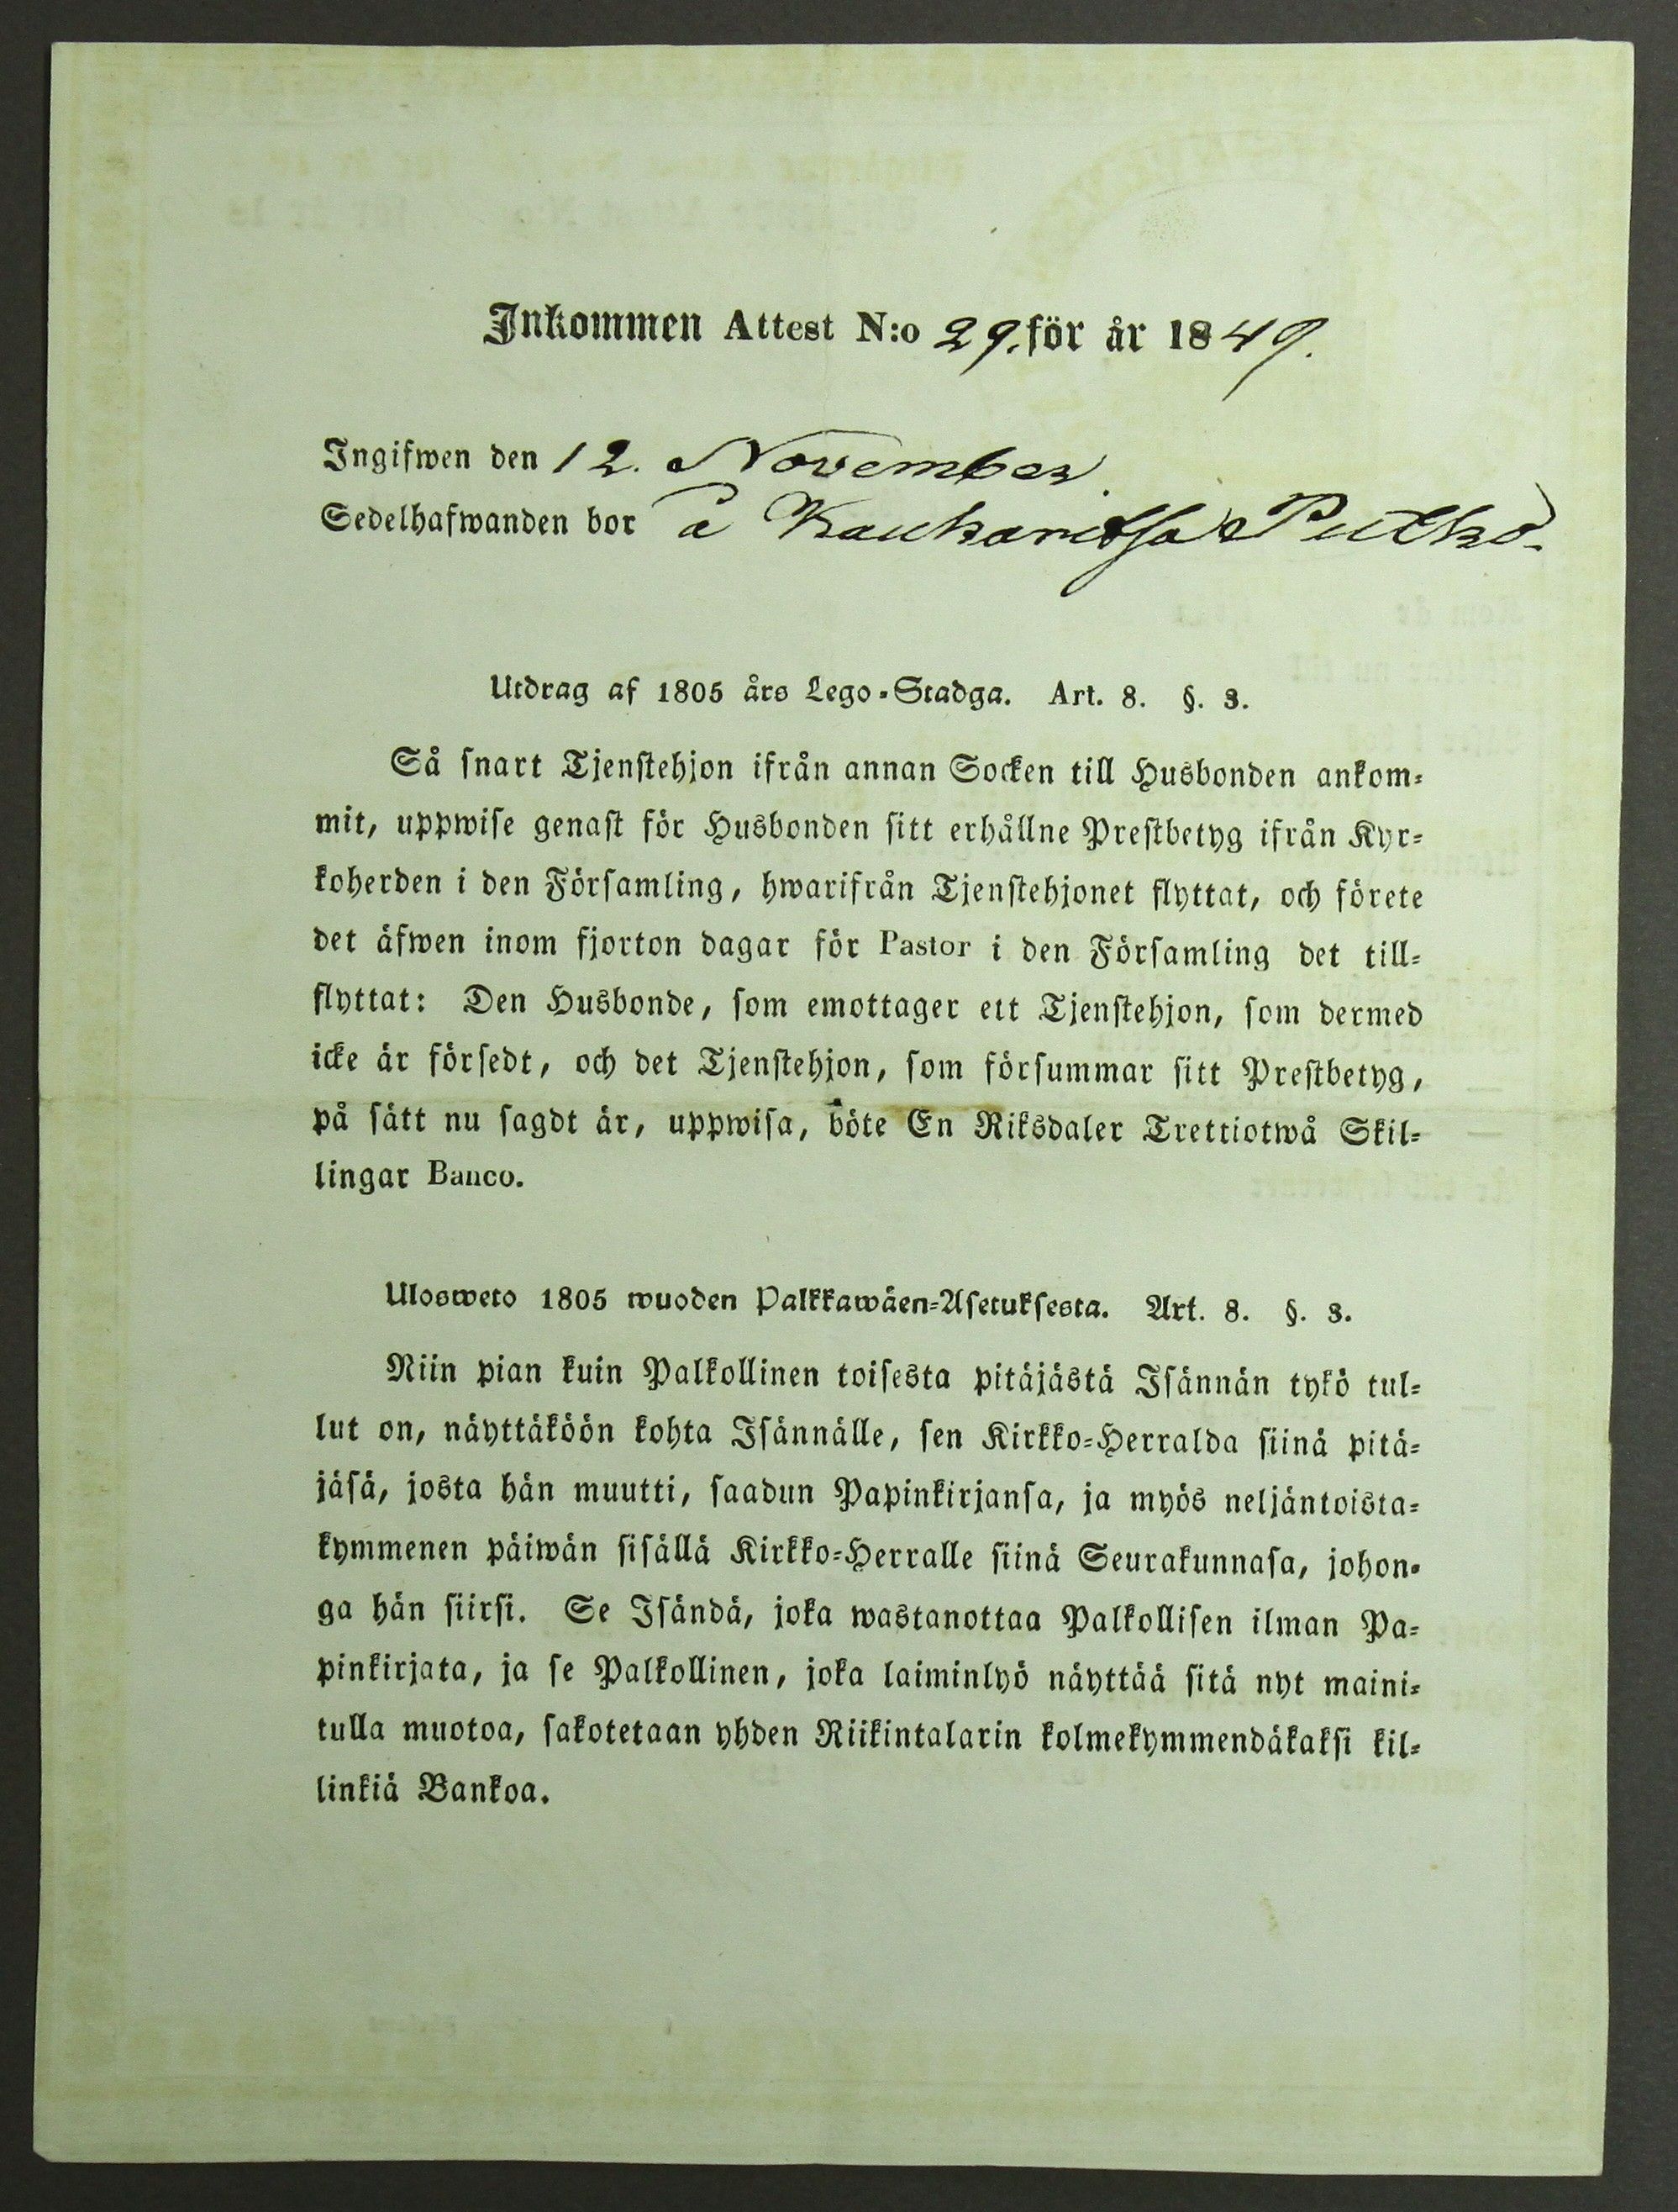 Inkommen Attest N:o 29. för år 1849.
Ingifwen den 12. November
Sedelhafwanden bor å Kauhanitsa Putko.
Utdrag af 1805 års Lego-Stadga. Art. 8. §. 3.
Så snart Tjenstehjon ifrån annan Socken till Husbonden ankom-
mit, uppwise genast för Husbonden sitt erhållne Prestbetyg ifrån Kyr-
koherden i den Församling, hwarifrån Tjenstehjonet flyttat, och förete
det äfwen inom fjorton dagar för Pastor i den Församling det till-
flyttat: Den Husbonde, som emottager ett Tjenstehjon, som dermed
icke är försedt, och det Tjenstehjon, som försummar sitt Prestbetyg,
på sätt nu sagdt är, uppwisa, böte En Riksdaler Trettiotwå Skil-
lingar Banco.
Ulosweto 1805 wuoden Palkkawäen-Asetuksesta. Art. 8. §. 3.
Niin pian kuin Palkollinen toisesta pitäjästä Isännän tykö tul-
lut on, näyttäköön kohta Isännälle, sen Kirkko-Herralda siinä pitä-
jäsä, josta hän muutti, saadun Papinkirjansa, ja myös neljäntoista-
kymmenen päiwän sisällä Kirkko-Herralle siinä Seurakunnasa, johon-
ga hän siirsi. Se Isändä, joka wastanottaa Palkollisen ilman Pa-
pinkirjata, ja se Palkollinen, joka laiminlyö näyttää sitä nyt maini-
tulla muotoa, sakotetaan yhden Riikintalarin kolmekymmendäkaksi kil-
linkiä Bankoa.